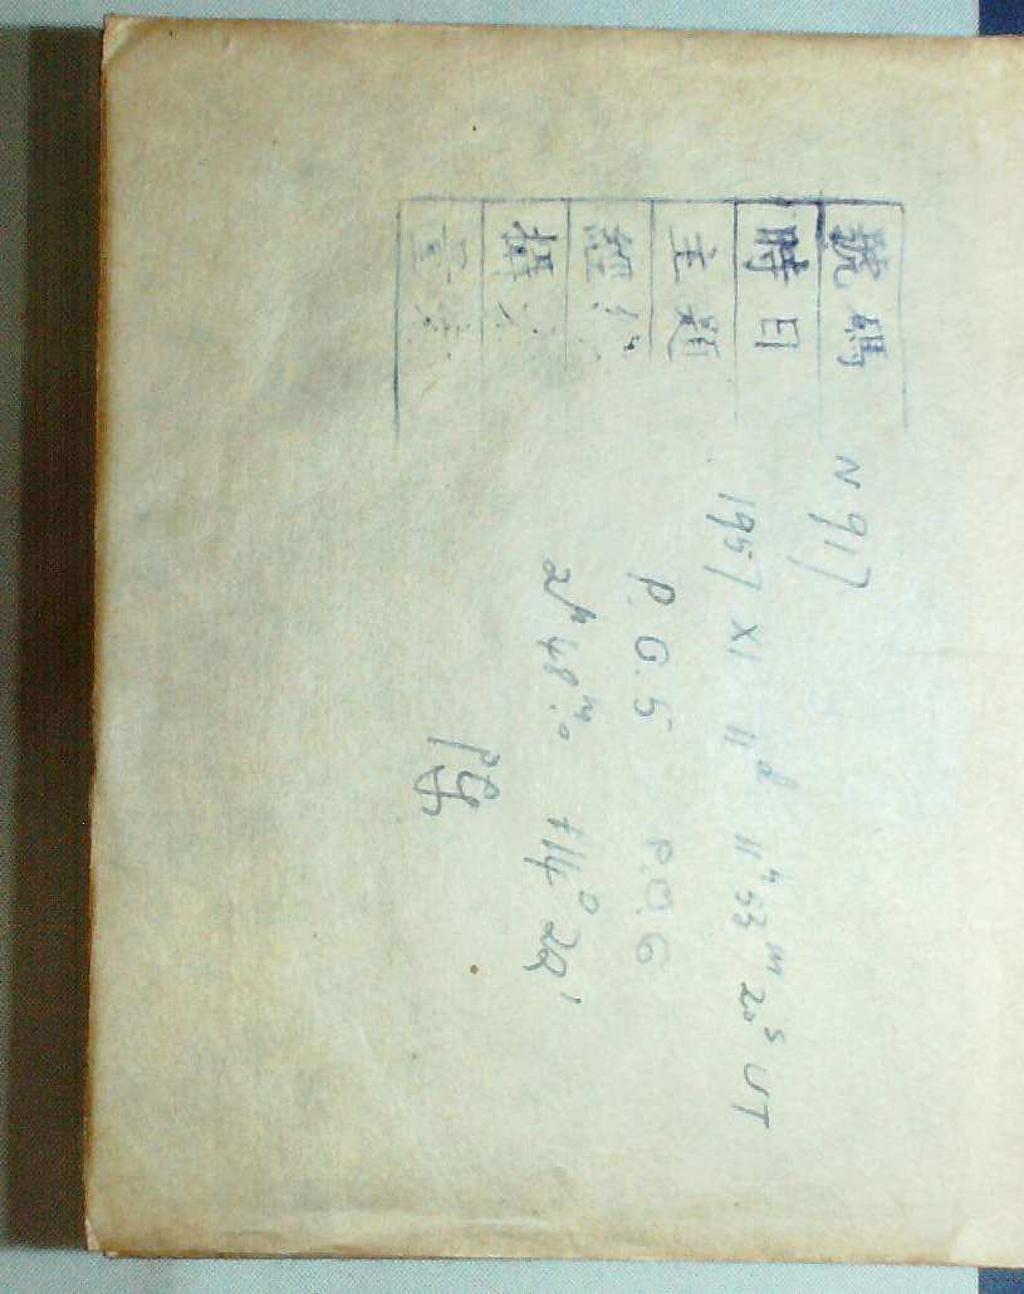 號碼 N 917
時日 1957 XI 11d 11h 53m 20s UT
主題 P.O. 5 P.O. 6
2h 48m.0 +14° 22'
攝